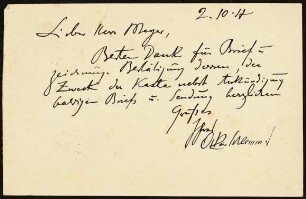 2.10.17
Lieber Herr Meyer,
Besten Dank für Brief u
Zeichnung. Bestätigung dessen der
Zweck der Karte nebst Ankündigung
baldigen Briefs u. Sendung herzlichen
Grußes
Ihres